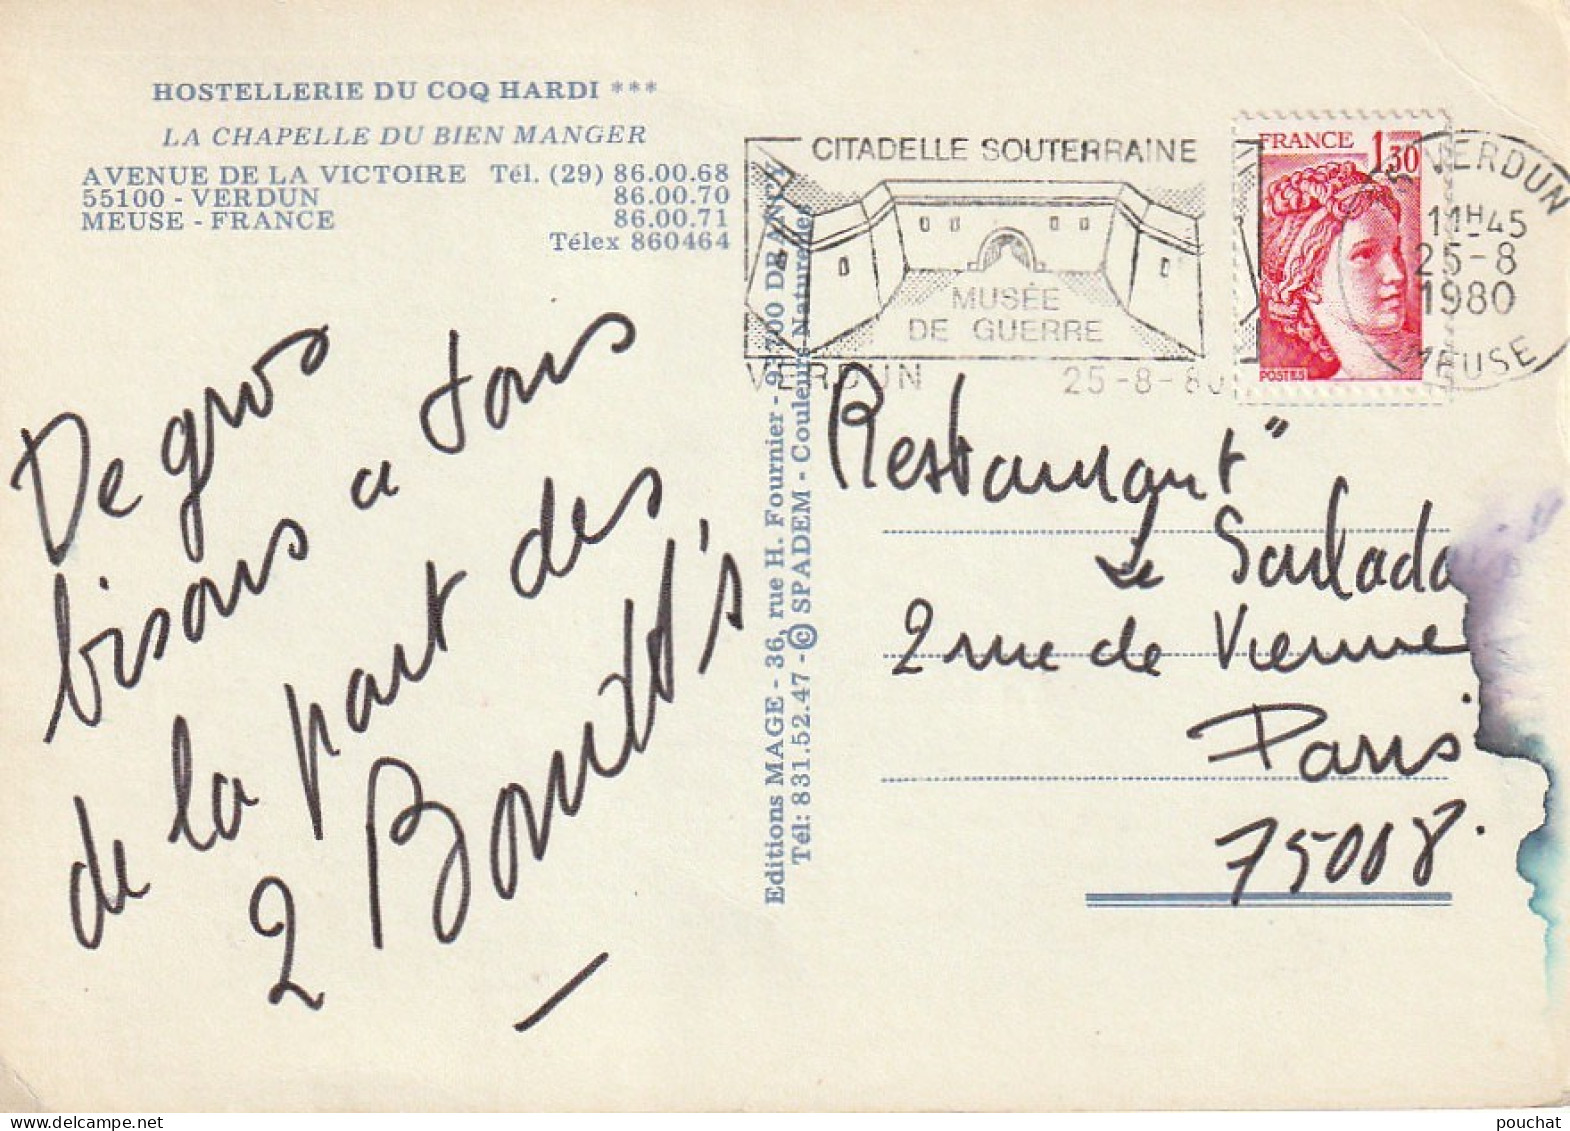 HOSTELLERIE DU COQ HARDI ***
LA CHAPELLE DU BIEN MANGER
AVENUE DE LA VICTOIRE Tél. (29) 86.00.68
55100 - VERDUN 86.00.70
MEUSE - FRANCE 86.00.71
Télex 860464
De gros
bisous a tous
de la part des
2
Editions MAGE - 36, rue H. Fournier - 93700 DRANCY
Tél: 831.52.47 - © SPADEM - Couleurs Naturelles
CITADELLE SOUTERRAINE
MUSÉE
DE GUERRE
VERDUN 25-8-80
FRANCE 1,30
POSTES
VERDUN
11H45
25-8
1980
MEUSE
Restaurant "
Le
2 rue de Vienne
Paris
75008.
pouchat